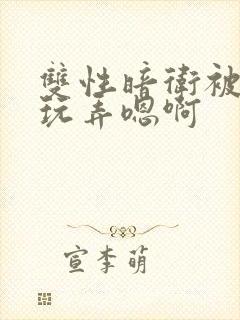 雙性暗衛被
玩弄嗯啊
宣李萌